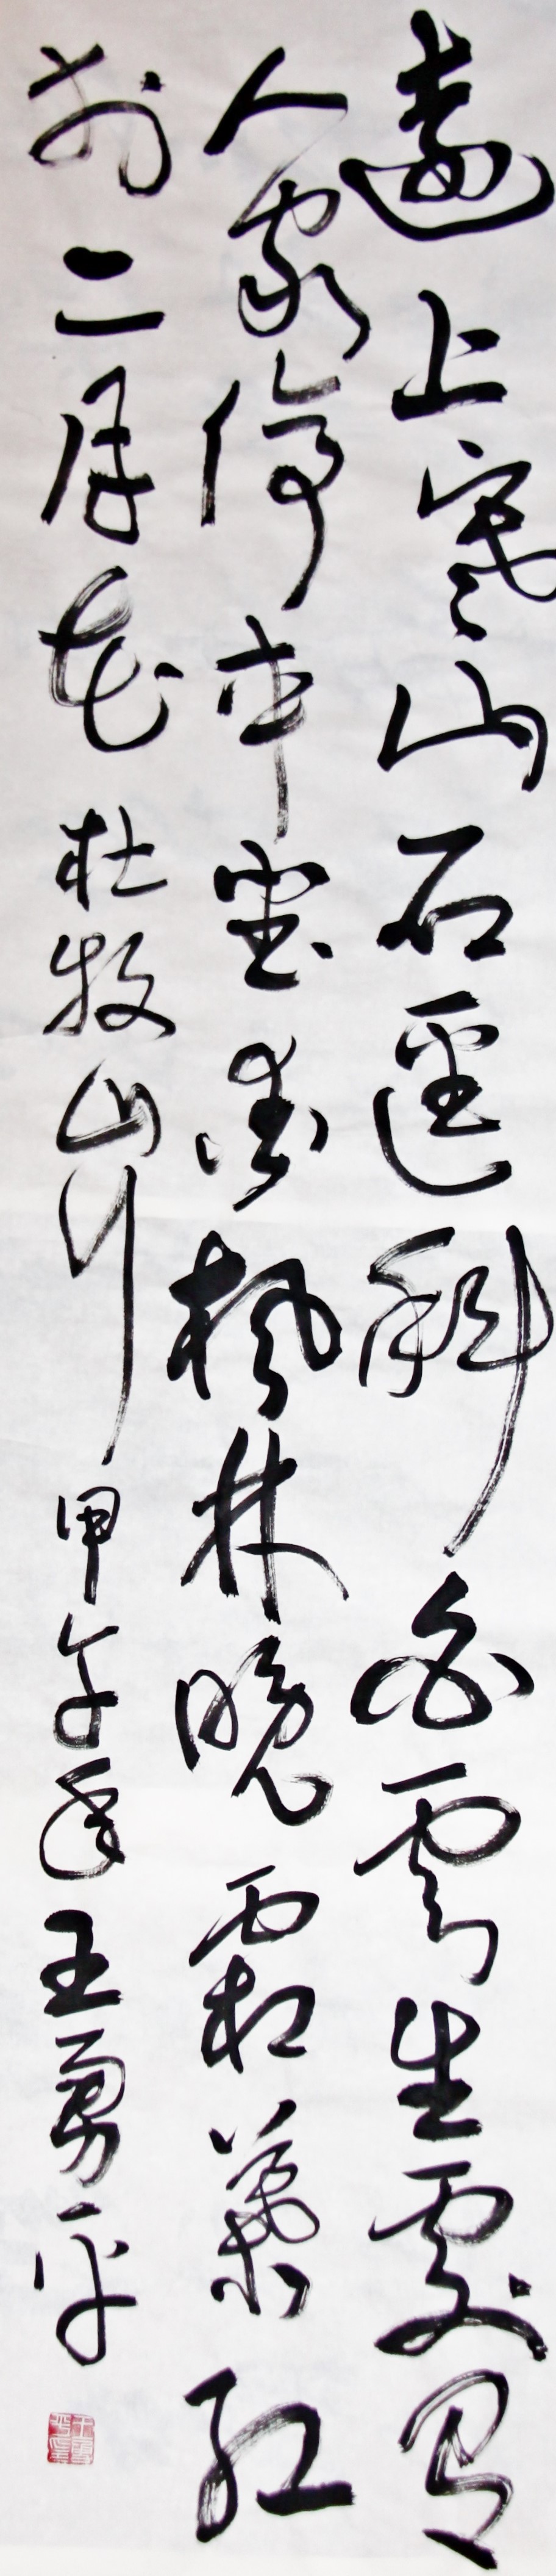 遠上寒山石逕斜白雲生處有
人家停車坐愛楓林晚霜葉紅
於二月花 杜牧山行 甲午年 王勇平
王勇平印